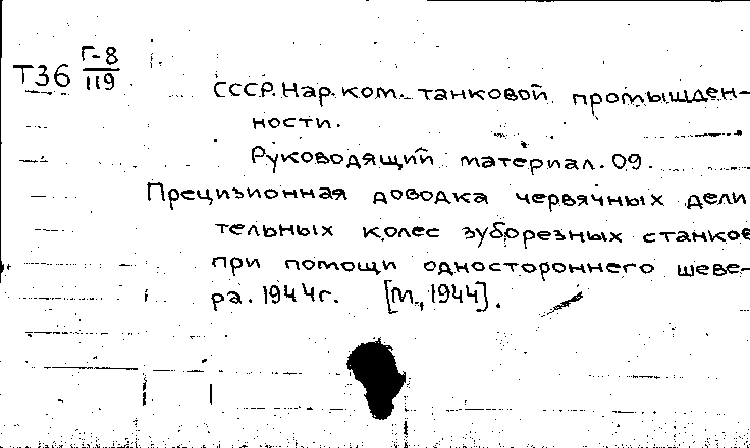 Г-8
Т36 119
СССР. Нар. ком. танковой промышлен-
ности.
Руководящий материал. 09.
Прецизионная доводка червячных дели
тельных колес зуборезных станков
при помощи одностороннего шеве-
ра. 1944г. [М., 1944].